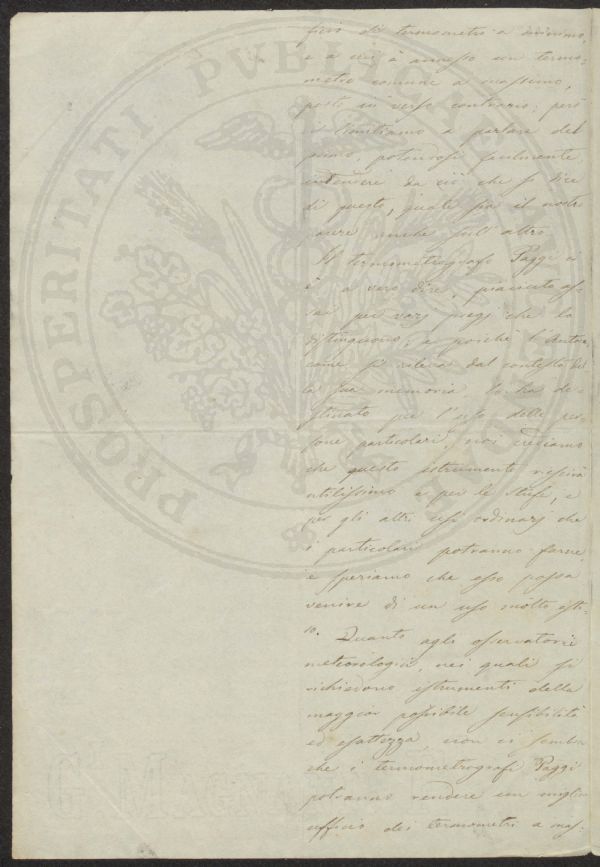 ficio di termometri a minimo,
e a cui è annesso un termo-
metro comune a massimo,
posti in verso contrario; però
ci limitiamo a parlare del
primo, potendosi facilmente
intendere da ciò che si dice
di questo, quale sia il nostro
parere anche sull'altro.
Il termometrografo Paggi
è, a vero dire, piaciuto as-
sai per varj pregj che lo
distinguono; e poichè l'Autore
come si rileva dal contesto del-
la sua memoria, lo ha de-
stinato per l'uso delle per-
sone particolari, noi crediamo
che questo istrumento riescirà
utilissimo e per le stufe, e
per gli altri usi ordinarj che
i particolari potranno farne,
e speriamo che esso possa
venire di un uso molto este-
so. Quanto agli osservatorii
meteorologici, nei quali si
richiedono istrumenti della
maggior possibile sensibilità
ed esattezza, non ci sembra
che i termometrografi Paggi
potranno rendere un miglior
ufficio dei termometri a mas-
PROSPERITATI PVBLICAE